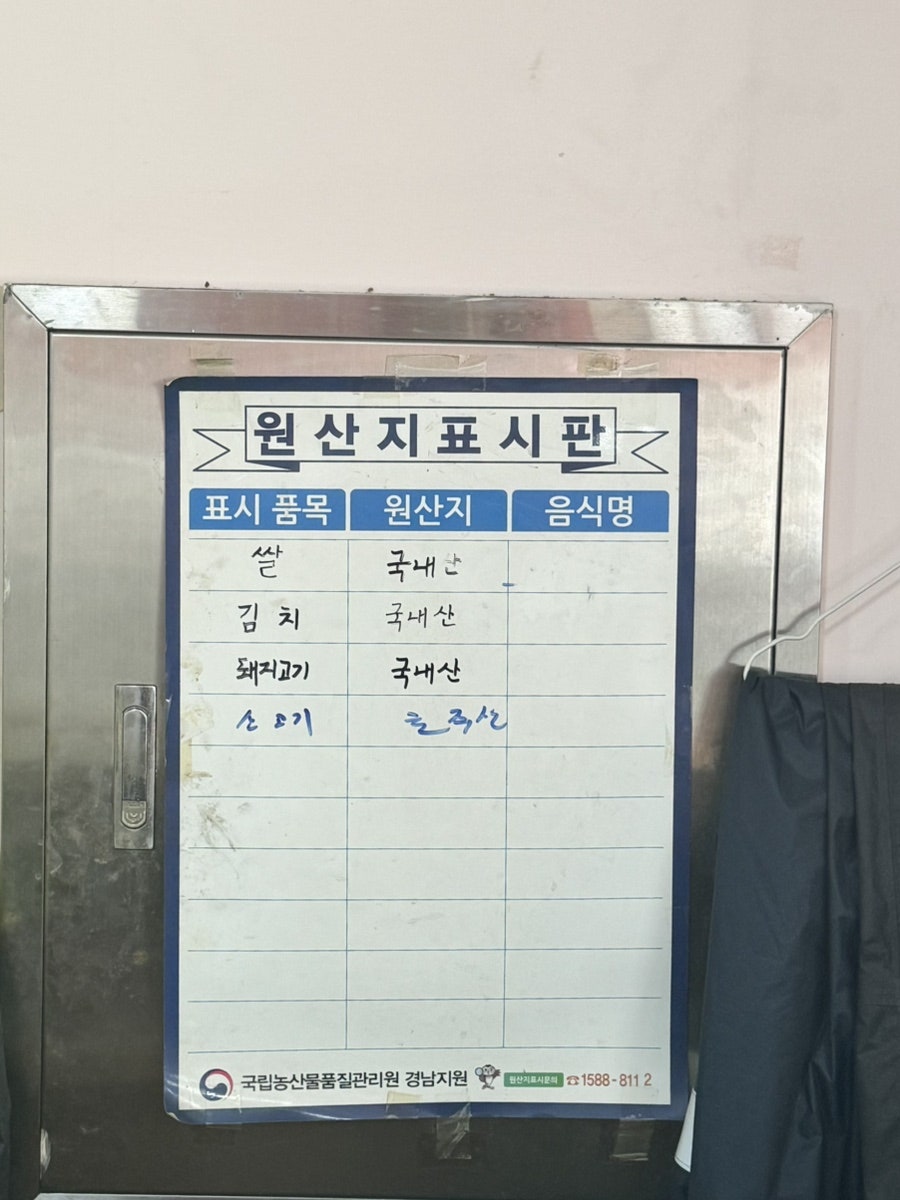 원산지표시판
표시 품목 원산지 음식명
쌀 국내산
김치 국내산
돼지고기 국내산
소고기
국립농산물품질관리원 경남지원 원산지표시문의 ☎1588-8112